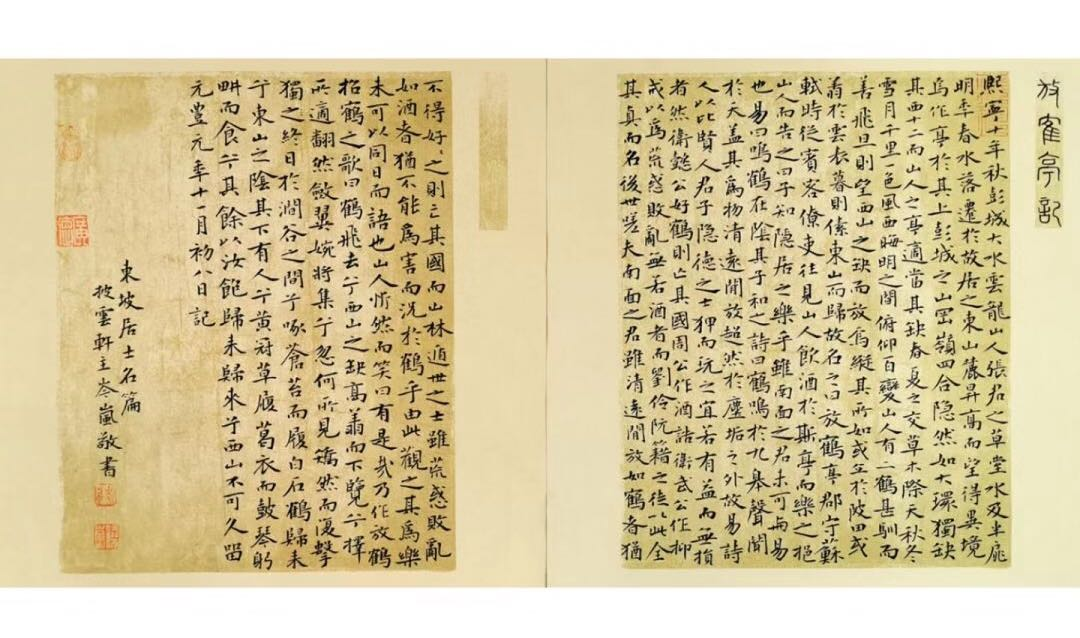 放寉亭記
熙寧十年秋彭城大水雲龍山人張君之草堂水及半扉
明年春水落遷於故居之東山麓昇高而望得異境
爲作亭於其上彭城之山岡嶺四合隱然如大環獨缺
其西十二而山人之亭適當其缺春夏之交草木際天秋冬
雪月千里一色風雨晦明之間俯仰百變山人有二鶴甚馴而
善飛旦則望西山之缺而放焉縱其所如或立於陂田或
翥於雲表暮則傃東山而歸故名之曰放鶴亭郡守蘇
軾時從賓客僚吏往見山人飲酒於斯亭而樂之挹
山人而告之曰子知隱居之樂乎雖南面之君未可與易
也易曰鳴鶴在陰其子和之詩曰鶴鳴於九皋聲聞
於天蓋其爲物清遠閒放超然於塵垢之外故易詩
人以比賢人君子隱德之士狎而玩之宜若有益而無損
者然衛懿公好鶴則亡其國周公作酒誥衛武公作抑
戒以爲荒惑敗亂無若酒者而劉伶阮籍之徒以此全
其真而名後世嗟夫南面之君雖清遠閒放如鶴者猶
不得好〻之則亡其國而山林遁世之士雖荒惑敗亂
如酒者猶不能爲害而況於鶴乎由此觀之其爲樂
未可以同日而語也山人忻然而笑曰有是哉乃作放鶴
招鶴之歌曰鶴飛去兮西山之缺高翥而下覽兮擇
所適翻然斂翼婉將集兮忽何所見矯然而復擊
獨之終日於澗谷之間兮啄蒼苔而履白石鶴歸來
兮東山之陰其下有人兮黃冠草履葛衣而鼓琴躬
畊而食兮其餘以汝飽歸來歸來兮西山不可久留
元豐元年十一月初八日記
東坡居士名篇
披雲軒主岑嵐敬書